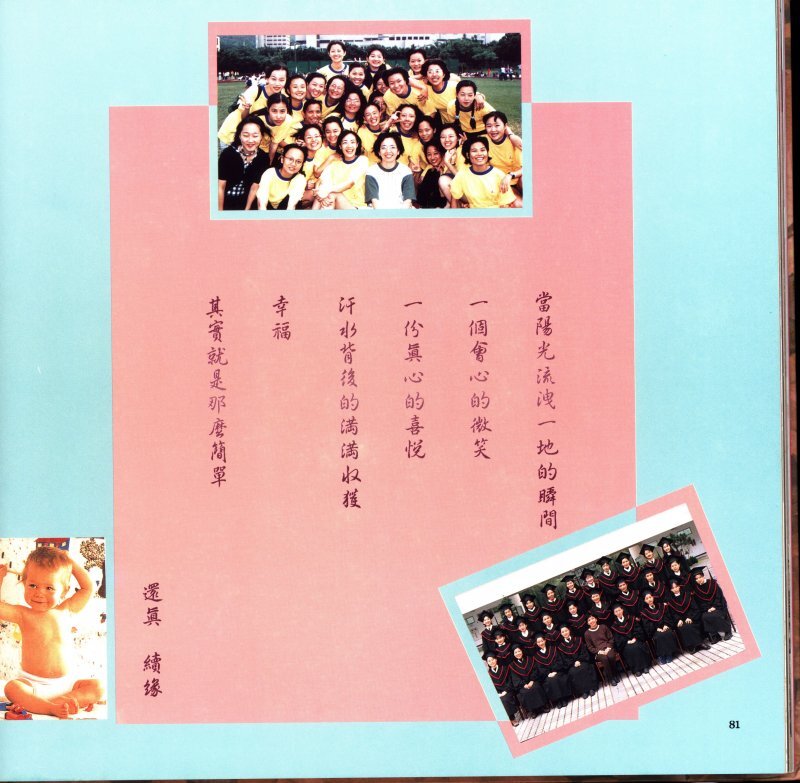 當陽光流洩一地的瞬間
一個會心的微笑
一份眞心的喜悅
汗水背後的満満收獲
幸福
其實就是那麼簡單
還眞 續緣
81